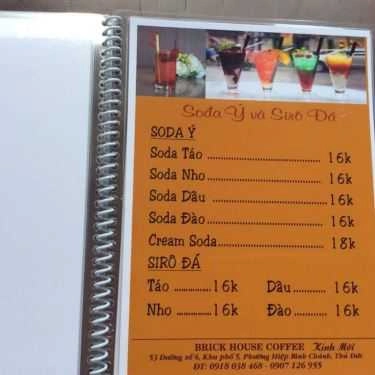 Soda Ý và Sirô Đá
SODA Ý
Soda Táo ........................ 16k
Soda Nho ........................ 16k
Soda Dâu ........................ 16k
Soda Đào ........................ 16k
Cream Soda ........................ 18k
SIRÔ ĐÁ
Táo ............... 16k Dâu ............ 16k
Nho ............... 16k Đào ............ 16k
BRICK HOUSE COFFEE Kính Mời
53 Đường số 6, Khu phố 5, Phường Hiệp Bình Chánh, Thủ Đức
ĐT: 0918 038 468 - 0907 126 955